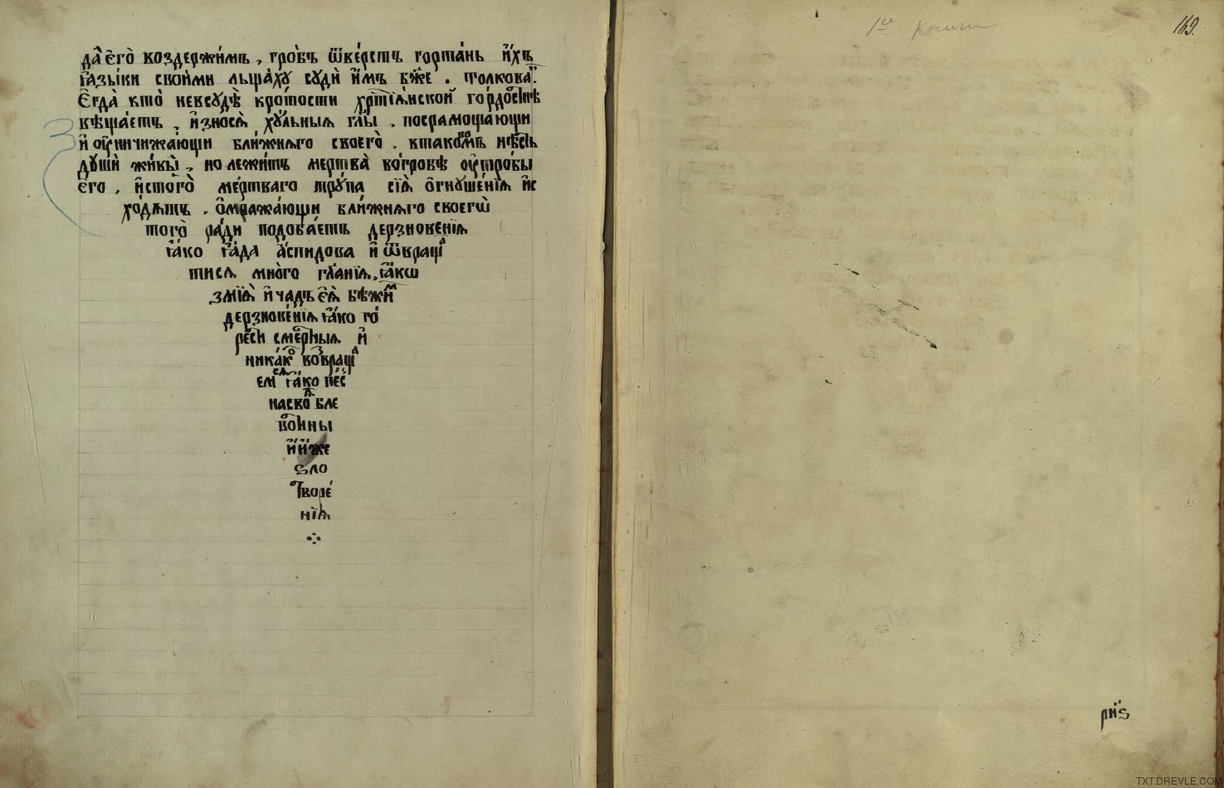 да̀ є҆го̀ воздержи́мъ , гро́бъ ѿве́рстъ горта́нь и҆́хъ
ꙗ҆зы́ки свои́ми льща́хꙋ сꙋдѝ и҆̀мъ бж҃е . толкова́.
Є҆гда̀ кто̀ невсꙋдѣ̀ кро́тости хр҃тїа́нской го́рдостнѣ
вѣща́етъ , и҆̀знося̀ хꙋ́льныя гл҃ы . посрамоща́ющи
и҆ ᲂу҆ничижа́ющи бли́жняго своего̀ . втаково́мъ нѣ́сть
дꙋши̑ жи́вы̀ , но лежи́тъ ме́ртва̀ во́гробѣ ᲂу҆тро́бы
є҆го̀ , и҆стого̀ ме́ртваго трꙋ́па сїѧ̀ ѻ҆гнꙋше́нїѧ и҆с
хо́дѧтъ . ѻ҆мража́ющи бли́жняго своегѡ̀
того̀ ра́ди подоба́етъ дерзнове́нїѧ
ꙗ҆́ко га́да а҆́спидова и҆ ѿвраща́
тисѧ мно́го гл҃анїѧ, ꙗ҆́кѡ
змїѧ̀ и҆ ча̑дъ є҆ѧ̀ бѣжи́м
дерзнове́нїѧ ꙗ҆́ко го́
рести̑ сме́ртныѧ и҆
ника́ко возвраща́
емсѧ ꙗ҆́ко пе́съ
насвоѧ̑ бле
воти́ны
и҆ ни́же
ѕло
творе́
нїѧ
1ᵃᵃ книги
169.
рн҃ѕ
TXT.DREVLE.COM